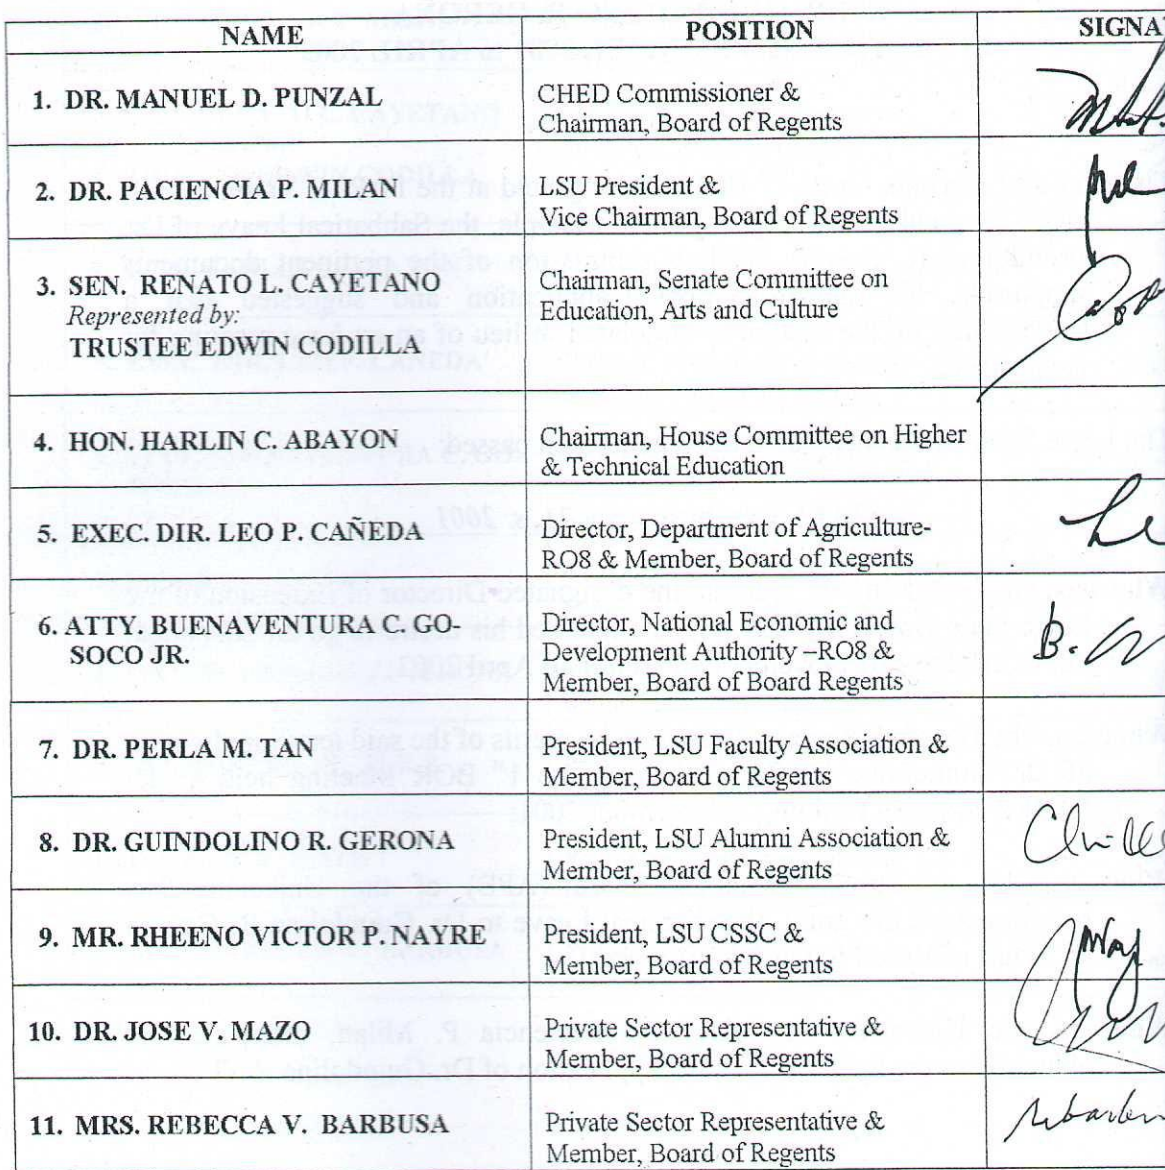 NAME POSITION SIGNA
1. DR. MANUEL D. PUNZAL CHED Commissioner &
Chairman, Board of Regents
2. DR. PACIENCIA P. MILAN LSU President &
Vice Chairman, Board of Regents
3. SEN. RENATO L. CAYETANO Chairman, Senate Committee on
Represented by: Education, Arts and Culture
TRUSTEE EDWIN CODILLA
4. HON. HARLIN C. ABAYON Chairman, House Committee on Higher
& Technical Education
5. EXEC. DIR. LEO P. CAÑEDA Director, Department of Agriculture-
RO8 & Member, Board of Regents
6. ATTY. BUENAVENTURA C. GO- Director, National Economic and
SOCO JR. Development Authority –RO8 &
Member, Board of Board Regents
7. DR. PERLA M. TAN President, LSU Faculty Association &
Member, Board of Regents
8. DR. GUINDOLINO R. GERONA President, LSU Alumni Association &
Member, Board of Regents
9. MR. RHEENO VICTOR P. NAYRE President, LSU CSSC &
Member, Board of Regents
10. DR. JOSE V. MAZO Private Sector Representative &
Member, Board of Regents
11. MRS. REBECCA V. BARBUSA Private Sector Representative &
Member, Board of Regents